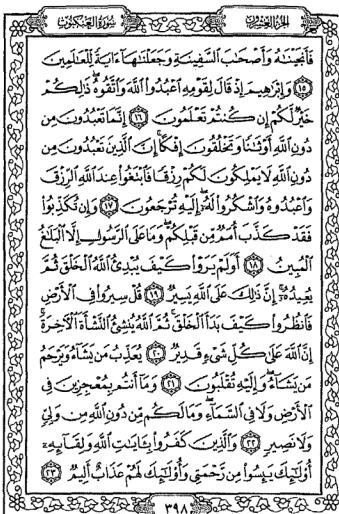 الجزء العشرون سورة العنكبوت
فَأَنجَيْنَٰهُ وَأَصْحَٰبَ ٱلسَّفِينَةِ وَجَعَلْنَٰهَآ ءَايَةً لِّلْعَٰلَمِينَ
١٥ وَإِبْرَٰهِيمَ إِذْ قَالَ لِقَوْمِهِ ٱعْبُدُوا۟ ٱللَّهَ وَٱتَّقُوهُ ۖ ذَٰلِكُمْ
خَيْرٌ لَّكُمْ إِن كُنتُمْ تَعْلَمُونَ ١٦ إِنَّمَا تَعْبُدُونَ مِن
دُونِ ٱللَّهِ أَوْثَٰنًا وَتَخْلُقُونَ إِفْكًا ۚ إِنَّ ٱلَّذِينَ تَعْبُدُونَ مِن
دُونِ ٱللَّهِ لَا يَمْلِكُونَ لَكُمْ رِزْقًا فَٱبْتَغُوا۟ عِندَ ٱللَّهِ ٱلرِّزْقَ
وَٱعْبُدُوهُ وَٱشْكُرُوا۟ لَهُۥٓ ۖ إِلَيْهِ تُرْجَعُونَ ١٧ وَإِن تُكَذِّبُوا۟
فَقَدْ كَذَّبَ أُمَمٌ مِّن قَبْلِكُمْ ۖ وَمَا عَلَى ٱلرَّسُولِ إِلَّا ٱلْبَلَٰغُ
ٱلْمُبِينُ ١٨ أَوَلَمْ يَرَوْا۟ كَيْفَ يُبْدِئُ ٱللَّهُ ٱلْخَلْقَ ثُمَّ
يُعِيدُهُۥٓ ۚ إِنَّ ذَٰلِكَ عَلَى ٱللَّهِ يَسِيرٌ ١٩ قُلْ سِيرُوا۟ فِى ٱلْأَرْضِ
فَٱنظُرُوا۟ كَيْفَ بَدَأَ ٱلْخَلْقَ ۚ ثُمَّ ٱللَّهُ يُنشِئُ ٱلنَّشْأَةَ ٱلْءَاخِرَةَ ۚ
إِنَّ ٱللَّهَ عَلَىٰ كُلِّ شَىْءٍ قَدِيرٌ ٢٠ يُعَذِّبُ مَن يَشَآءُ وَيَرْحَمُ
مَن يَشَآءُ ۖ وَإِلَيْهِ تُقْلَبُونَ ٢١ وَمَآ أَنتُم بِمُعْجِزِينَ فِى
ٱلْأَرْضِ وَلَا فِى ٱلسَّمَآءِ ۖ وَمَا لَكُم مِّن دُونِ ٱللَّهِ مِن وَلِىٍّ
وَلَا نَصِيرٍ ٢٢ وَٱلَّذِينَ كَفَرُوا۟ بِـَٔايَٰتِ ٱللَّهِ وَلِقَآئِهِۦٓ
أُو۟لَٰٓئِكَ يَئِسُوا۟ مِن رَّحْمَتِى وَأُو۟لَٰٓئِكَ لَهُمْ عَذَابٌ أَلِيمٌ ٢٣
٣٩٨